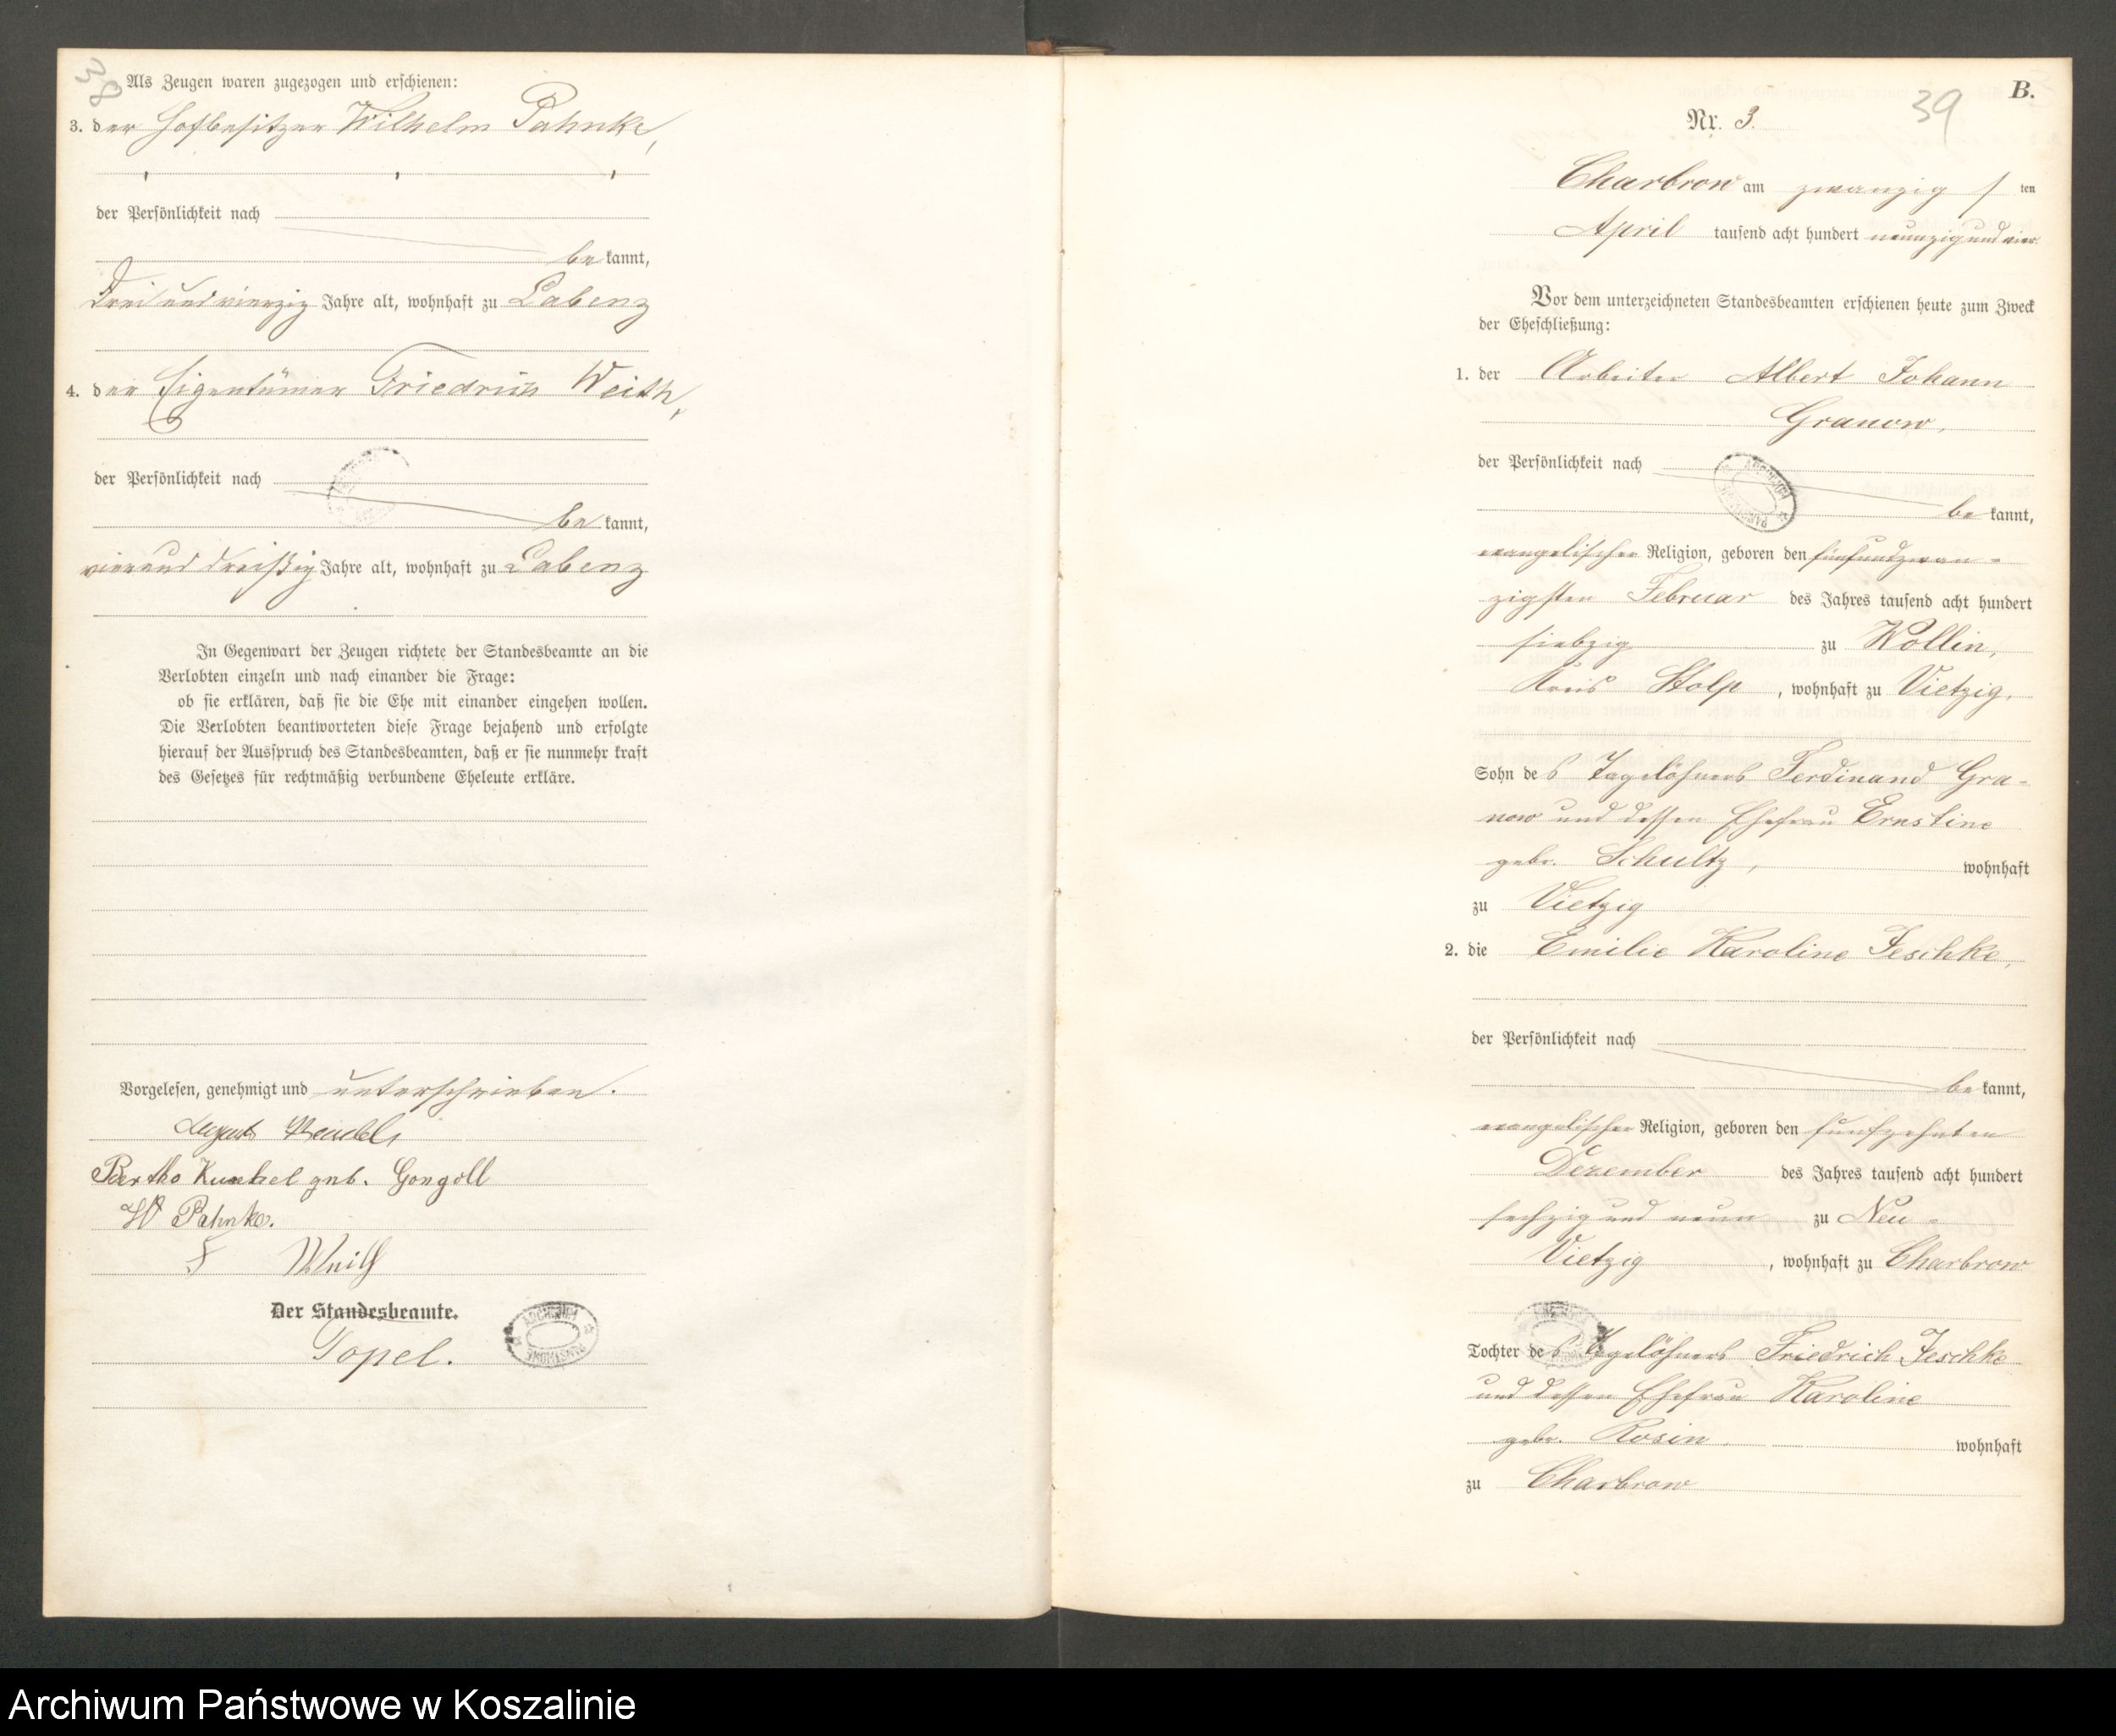 38
Als Zeugen waren zugezogen und erschienen:
3. der Hofbesitzer Wilhelm Pahnke,
der Persönlichkeit nach
bekannt,
dreiundvierzig Jahre alt, wohnhaft zu Labenz
4. der Eigentümer Friedrich Weith,
der Persönlichkeit nach
bekannt,
vierunddreißig Jahre alt, wohnhaft zu Labenz
In Gegenwart der Zeugen richtete der Standesbeamte an die
Verlobten einzeln und nach einander die Frage:
ob sie erklären, daß sie die Ehe mit einander eingehen wollen.
Die Verlobten beantworteten diese Frage bejahend und erfolgte
hierauf der Ausspruch des Standesbeamten, daß er sie nunmehr kraft
des Gesetzes für rechtmäßig verbundene Eheleute erkläre.
Vorgelesen, genehmigt und unterschrieben.
August
Bertha Kunkel geb. Gongoll
W Pahnke.
F Weith
Der Standesbeamte.
Topel.
ARCHIWUM PAŃSTWOWE
B.
39
Nr. 3.
Charbrow am zwanzigsten
April tausend acht hundert neunzig und vier.
Vor dem unterzeichneten Standesbeamten erschienen heute zum Zweck
der Eheschließung:
1. der Arbeiter Albert Johann
Granow,
der Persönlichkeit nach
bekannt,
evangelischer Religion, geboren den fünfundzwan-
zigsten Februar des Jahres tausend acht hundert
siebzig zu Wollin,
Kreis Stolp, wohnhaft zu Vietzig,
Sohn des Tagelöhners Ferdinand Gra-
now und dessen Ehefrau Ernstine
gebr. Schultz, wohnhaft
zu Vietzig
2. die Emilie Karoline Jeschke,
der Persönlichkeit nach
bekannt,
evangelischer Religion, geboren den fünfzehnten
Dezember des Jahres tausend acht hundert
sechzig und neun zu Neu-
Vietzig, wohnhaft zu Charbrow
Tochter des Tagelöhners Friedrich Jeschke
und dessen Ehefrau Karoline
gebr. Rosin wohnhaft
zu Charbrow
Archiwum Państwowe w Koszalinie